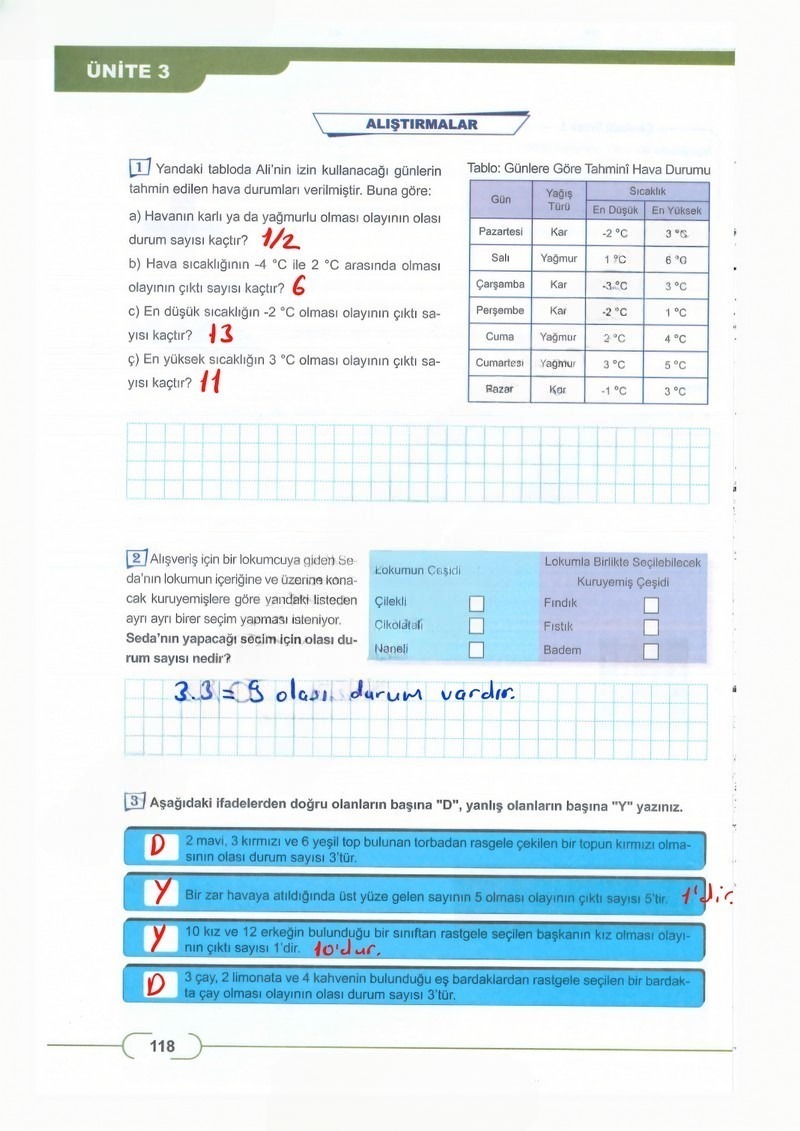 ÜNİTE 3
ALIŞTIRMALAR
1 Yandaki tabloda Ali'nin izin kullanacağı günlerin
tahmin edilen hava durumları verilmiştir. Buna göre:
a) Havanın karlı ya da yağmurlu olması olayının olası
durum sayısı kaçtır? 1/2
b) Hava sıcaklığının -4 °C ile 2 °C arasında olması
olayının çıktı sayısı kaçtır? 6
c) En düşük sıcaklığın -2 °C olması olayının çıktı sa-
yısı kaçtır? 13
ç) En yüksek sıcaklığın 3 °C olması olayının çıktı sa-
yısı kaçtır? 11
Tablo: Günlere Göre Tahminî Hava Durumu
Gün Yağış Türü Sıcaklık
En Düşük En Yüksek
Pazartesi Kar -2 °C 3 °C
Salı Yağmur 1 °C 6 °C
Çarşamba Kar -3 °C 3 °C
Perşembe Kar -2 °C 1 °C
Cuma Yağmur 2 °C 4 °C
Cumartesi Yağmur 3 °C 5 °C
Pazar Kar -1 °C 3 °C
2 Alışveriş için bir lokumcuya giden Se-
da'nın lokumun içeriğine ve üzerine kona-
cak kuruyemişlere göre yandaki listeden
ayrı ayrı birer seçim yapması isteniyor.
Seda'nın yapacağı seçim için olası du-
rum sayısı nedir?
Lokumun Çeşidi
Çilekli
Çikolatalı
Naneli
Lokumla Birlikte Seçilebilecek
Kuruyemiş Çeşidi
Fındık
Fıstık
Badem
3.3 = 9 olası durum vardır.
3 Aşağıdaki ifadelerden doğru olanların başına "D", yanlış olanların başına "Y" yazınız.
D 2 mavi, 3 kırmızı ve 6 yeşil top bulunan torbadan rasgele çekilen bir topun kırmızı olma-
sının olası durum sayısı 3'tür.
Y Bir zar havaya atıldığında üst yüze gelen sayının 5 olması olayının çıktı sayısı 5'tir. 1'dir.
Y 10 kız ve 12 erkeğin bulunduğu bir sınıftan rastgele seçilen başkanın kız olması olayı-
nın çıktı sayısı 1'dir. 10'dur.
D 3 çay, 2 limonata ve 4 kahvenin bulunduğu eş bardaklardan rastgele seçilen bir bardak-
ta çay olması olayının olası durum sayısı 3'tür.
118